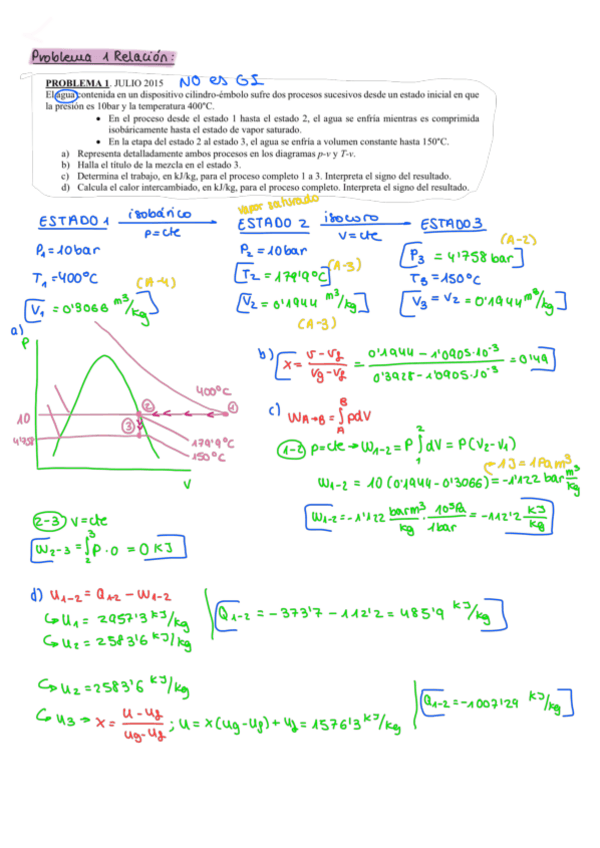 Problema 1 Relación:
PROBLEMA 1. JULIO 2015 NO es GI
El agua contenida en un dispositivo cilindro-émbolo sufre dos procesos sucesivos desde un estado inicial en que
la presión es 10bar y la temperatura 400°C.
• En el proceso desde el estado 1 hasta el estado 2, el agua se enfría mientras es comprimida
isobáricamente hasta el estado de vapor saturado.
• En la etapa del estado 2 al estado 3, el agua se enfría a volumen constante hasta 150°C.
a) Representa detalladamente ambos procesos en los diagramas p-v y T-v.
b) Halla el título de la mezcla en el estado 3.
c) Determina el trabajo, en kJ/kg, para el proceso completo 1 a 3. Interpreta el signo del resultado.
d) Calcula el calor intercambiado, en kJ/kg, para el proceso completo. Interpreta el signo del resultado.
vapor saturado
ESTADO 1 isobárico P=cte ESTADO 2 isocoro V=cte ESTADO 3
P1=10bar P2=10bar P3 = 4'758 bar (A-2)
T1=400°C T2=179'9°C (A-3) T3=150°C
V1 = 0'3066 m³/kg (A-4) V2=0'1944 m³/kg (A-3) V3 = V2 = 0'1944 m³/kg
a) P
400°C
10
4'758
1
2
3
179'9°C
150°C
V
b) x = v-vf / vg-vf = 0'1944 - 1'0905·10⁻³ / 0'3928 - 1'0905·10⁻³ = 0'49
c) WA→B = ∫AB pdV
1-2 p=cte → W1-2 = P ∫12 dV = P(V2-V1)
1J = 1Pa m³
W1-2 = 10(0'1944-0'3066) = -1'122 bar m³/kg
W1-2 = -1'122 bar m³/kg · 10⁵Pa/1bar = -112'2 kJ/kg
2-3 V=cte
W2-3 = ∫23 P·0 = 0 KJ
d) U1-2 = Q1-2 - W1-2
U1 = 2957'3 kJ/kg
U2 = 2583'6 kJ/kg
Q1-2 = -373'7 - 112'2 = 485'9 kJ/kg
U2 = 2583'6 kJ/kg
U3 → x = u-uf / ug-uf ; u = x(ug-uf) + uf = 1576'3 kJ/kg
Q1-2 = -1007'29 kJ/kg